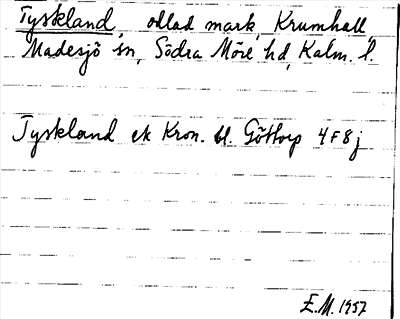 Tyskland, odlad mark, Krumhall,
Madesjö sn, Södra Möre hd, Kalm. l.
Tyskland ek Kron. bl. Göttorp 4F8j
E.M. 1957